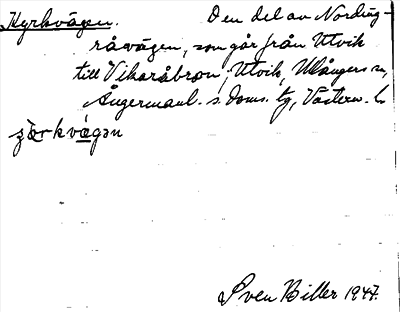 Kyrkvägen. Den del av Nording-
råvägen, som går från Utvik
till Vikaråbron, Utvik, Ullångers sn,
Ångermanl. s. doms. tg, Västern. l.
Sven Biller 1947.